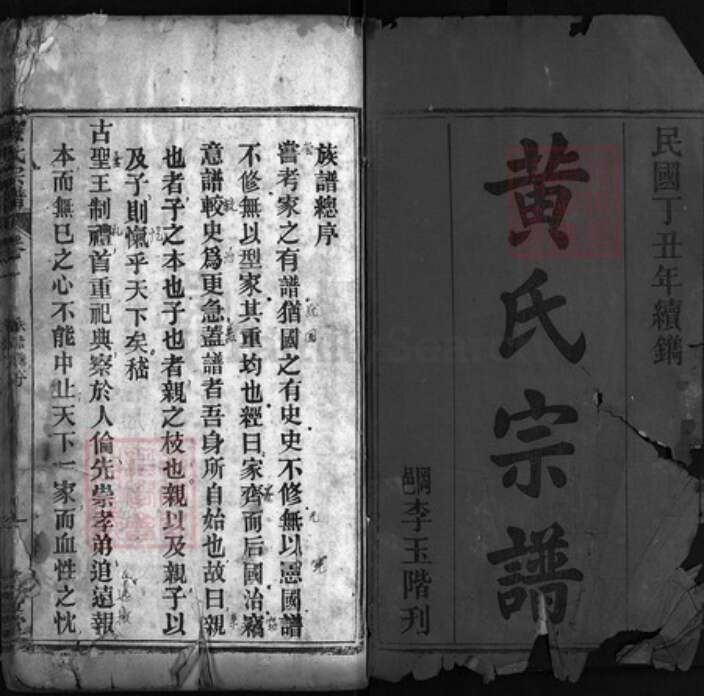 民國丁丑年續鐫
黃氏宗譜
邑李玉階刋
族譜總序
嘗考家之有譜猶國之有史史不修無以憲國譜
不修無以型家其重均也經曰家齊而后國治竊
意譜較史爲更急蓋譜者吾身所自始也故曰親
也者子之本也子也者親之枝也親以及親子以
及子則愾乎天下矣嵇
古聖王制禮首重祀典察於人倫先崇孝弟追遠報
本而無已之心不能中止天下一家而血性之忱